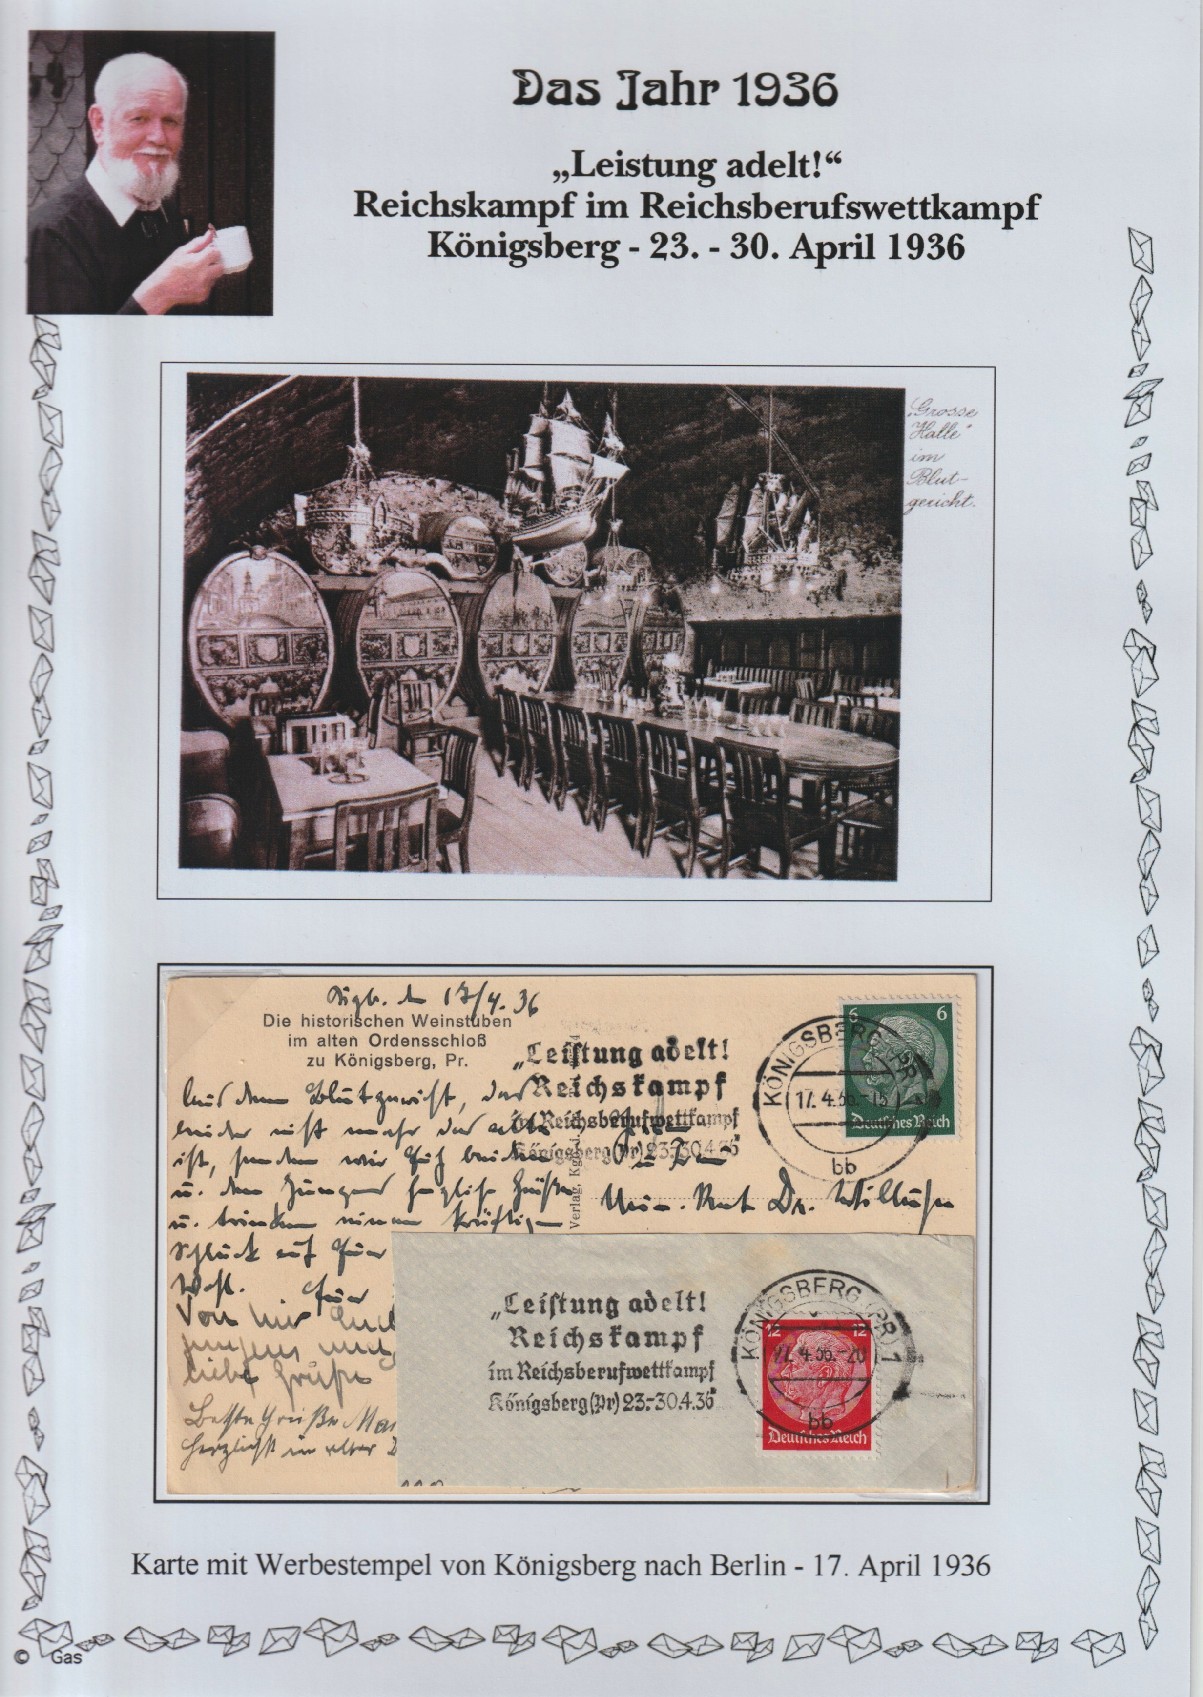 Das Jahr 1936
„Leistung adelt!“
Reichskampf im Reichsberufswettkampf
Königsberg - 23. - 30. April 1936
„Grosse
Halle“
im
Blut-
gericht.
Kbg. den 17/4. 36
Die historischen Weinstuben
im alten Ordensschloß
zu Königsberg, Pr.
„Leistung adelt!
Reichskampf
im Reichsberufwettkampf
Königsberg (Pr) 23.-30.4.36
KÖNIGSBERG (PR)
17. 4.36.
bb
6 6
Deutsches Reich
Verlag, Kgb
Aus dem Blutgericht, das
leider nicht mehr das alte
ist, senden wir Euch beiden
u. den Jungens herzliche Grüße
u. trinken einen kräftigen
Schluck auf Euer
Wohl. Euer
Dr.
Von mir Euch
liebe Grüße
Beste Grüße
Herzlichst in alter
„Leistung adelt!
Reichskampf
im Reichsberufwettkampf
Königsberg (Pr) 23.-30.4.36
KÖNIGSBERG (PR) 1
4.36.-20
bb
12 12
Deutsches Reich
Karte mit Werbestempel von Königsberg nach Berlin - 17. April 1936
© Gas